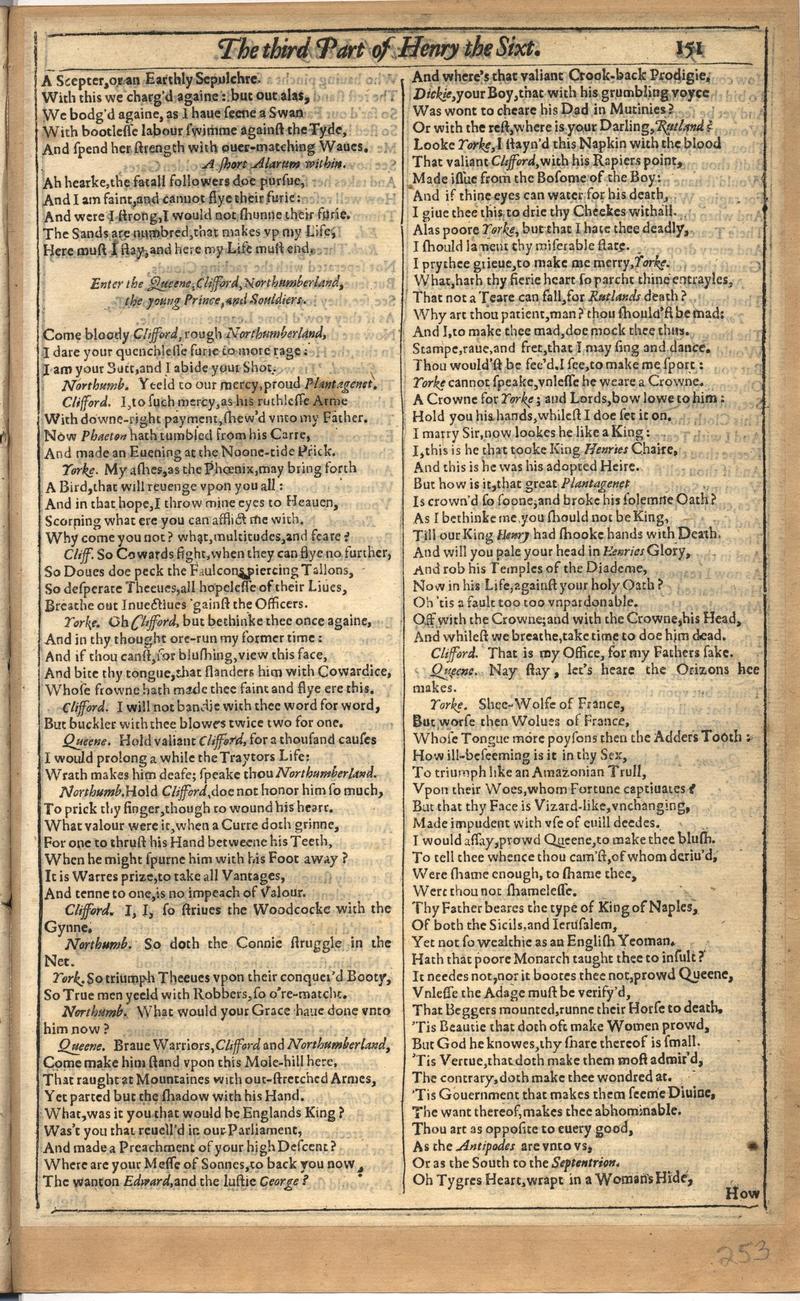 The third Part of Henry the Sixt. 151
A Scepter, or an Earthly Sepulchre.
With this we charg'd againe: but out alas,
We bodg'd againe, as I haue seene a Swan
With bootlesse labour swimme against the Tyde,
And spend her strength with ouer-matching Waues.
A short Alarum within.
Ah hearke, the fatall followers doe pursue,
And I am faint, and cannot flye their furie:
And were I strong, I would not shunne their furie.
The Sands are numbred, that makes vp my Life,
Here must I stay, and here my Life must end.
Enter the Queene, Clifford, Northumberland,
the young Prince, and Souldiers.
Come bloody Clifford, rough Northumberland,
I dare your quenchlesse furie to more rage:
I am your Butt, and I abide your Shot.
Northumb. Yeeld to our mercy, proud Plantagenet.
Clifford. I, to such mercy, as his ruthlesse Arme
With downe-right payment, shew'd vnto my Father.
Now Phaeton hath tumbled from his Carre,
And made an Euening at the Noone-tide Prick.
Yorke. My ashes, as the Phœnix, may bring forth
A Bird, that will reuenge vpon you all:
And in that hope, I throw mine eyes to Heauen,
Scorning what ere you can afflict me with.
Why come you not? what, multitudes, and feare?
Cliff. So Cowards fight, when they can flye no further,
So Doues doe peck the Faulcons piercing Tallons,
So desperate Theeues, all hopelesse of their Liues,
Breathe out Inuectiues 'gainst the Officers.
Yorke. Oh Clifford, but bethinke thee once againe,
And in thy thought ore-run my former time:
And if thou canst, for blushing, view this face,
And bite thy tongue, that slanders him with Cowardice,
Whose frowne hath made thee faint and flye ere this.
Clifford. I will not bandie with thee word for word,
But buckler with thee blowes twice two for one.
Queene. Hold valiant Clifford, for a thousand causes
I would prolong a while the Traytors Life:
Wrath makes him deafe; speake thou Northumberland.
Northumb. Hold Clifford, doe not honor him so much,
To prick thy finger, though to wound his heart.
What valour were it, when a Curre doth grinne,
For one to thrust his Hand betweene his Teeth,
When he might spurne him with his Foot away?
It is Warres prize, to take all Vantages,
And tenne to one, is no impeach of Valour.
Clifford. I, I, so striues the Woodcocke with the
Gynne.
Northumb. So doth the Connie struggle in the
Net.
York. So triumph Theeues vpon their conquer'd Booty,
So True men yeeld with Robbers, so o're-matcht.
Northumb. What would your Grace haue done vnto
him now?
Queene. Braue Warriors, Clifford and Northumberland,
Come make him stand vpon this Mole-hill here,
That raught at Mountaines with out-stretched Armes,
Yet parted but the shadow with his Hand.
What, was it you that would be Englands King?
Was't you that reuell'd in our Parliament,
And made a Preachment of your high Descent?
Where are your Messe of Sonnes, to back you now,
The wanton Edward, and the lustie George?
And where's that valiant Crook-back Prodigie,
Dickie, your Boy, that with his grumbling voyce
Was wont to cheare his Dad in Mutinies?
Or with the rest, where is your Darling, Rutland?
Looke Yorke, I stayn'd this Napkin with the blood
That valiant Clifford, with his Rapiers point,
Made issue from the Bosome of the Boy:
And if thine eyes can water for his death,
I giue thee this to drie thy Cheekes withall.
Alas poore Yorke, but that I hate thee deadly,
I should lament thy miserable state.
I prythee grieue, to make me merry, Yorke.
What, hath thy fierie heart so parcht thine entrayles,
That not a Teare can fall, for Rutlands death?
Why art thou patient, man? thou should'st be mad:
And I, to make thee mad, doe mock thee thus.
Stampe, raue, and fret, that I may sing and dance.
Thou would'st be fee'd, I see, to make me sport:
Yorke cannot speake, vnlesse he weare a Crowne.
A Crowne for Yorke; and Lords, bow lowe to him:
Hold you his hands, whilest I doe set it on.
I marry Sir, now lookes he like a King:
I, this is he that tooke King Henries Chaire,
And this is he was his adopted Heire.
But how is it, that great Plantagenet
Is crown'd so soone, and broke his solemne Oath?
As I bethinke me, you should not be King,
Till our King Henry had shooke hands with Death.
And will you pale your head in Henries Glory,
And rob his Temples of the Diademe,
Now in his Life, against your holy Oath?
Oh 'tis a fault too too vnpardonable.
Off with the Crowne; and with the Crowne, his Head,
And whilest we breathe, take time to doe him dead.
Clifford. That is my Office, for my Fathers sake.
Queene. Nay stay, let's heare the Orizons hee
makes.
Yorke. Shee-Wolfe of France,
But worse then Wolues of France,
Whose Tongue more poysons then the Adders Tooth:
How ill-beseeming is it in thy Sex,
To triumph like an Amazonian Trull,
Vpon their Woes, whom Fortune captiuates?
But that thy Face is Vizard-like, vnchanging,
Made impudent with vse of euill deedes.
I would assay, prowd Queene, to make thee blush.
To tell thee whence thou cam'st, of whom deriu'd,
Were shame enough, to shame thee,
Wert thou not shamelesse.
Thy Father beares the type of King of Naples,
Of both the Sicils, and Ierusalem,
Yet not so wealthie as an English Yeoman.
Hath that poore Monarch taught thee to insult?
It needes not, nor it bootes thee not, prowd Queene,
Vnlesse the Adage must be verify'd,
That Beggers mounted, runne their Horse to death.
'Tis Beautie that doth oft make Women prowd,
But God he knowes, thy share thereof is small.
'Tis Vertue, that doth make them most admir'd,
The contrary, doth make thee wondred at.
'Tis Gouernment that makes them seeme Diuine,
The want thereof, makes thee abhominable.
Thou art as opposite to euery good,
As the Antipodes are vnto vs,
Or as the South to the Septentrion.
Oh Tygres Heart, wrapt in a Womans Hide,
How
253